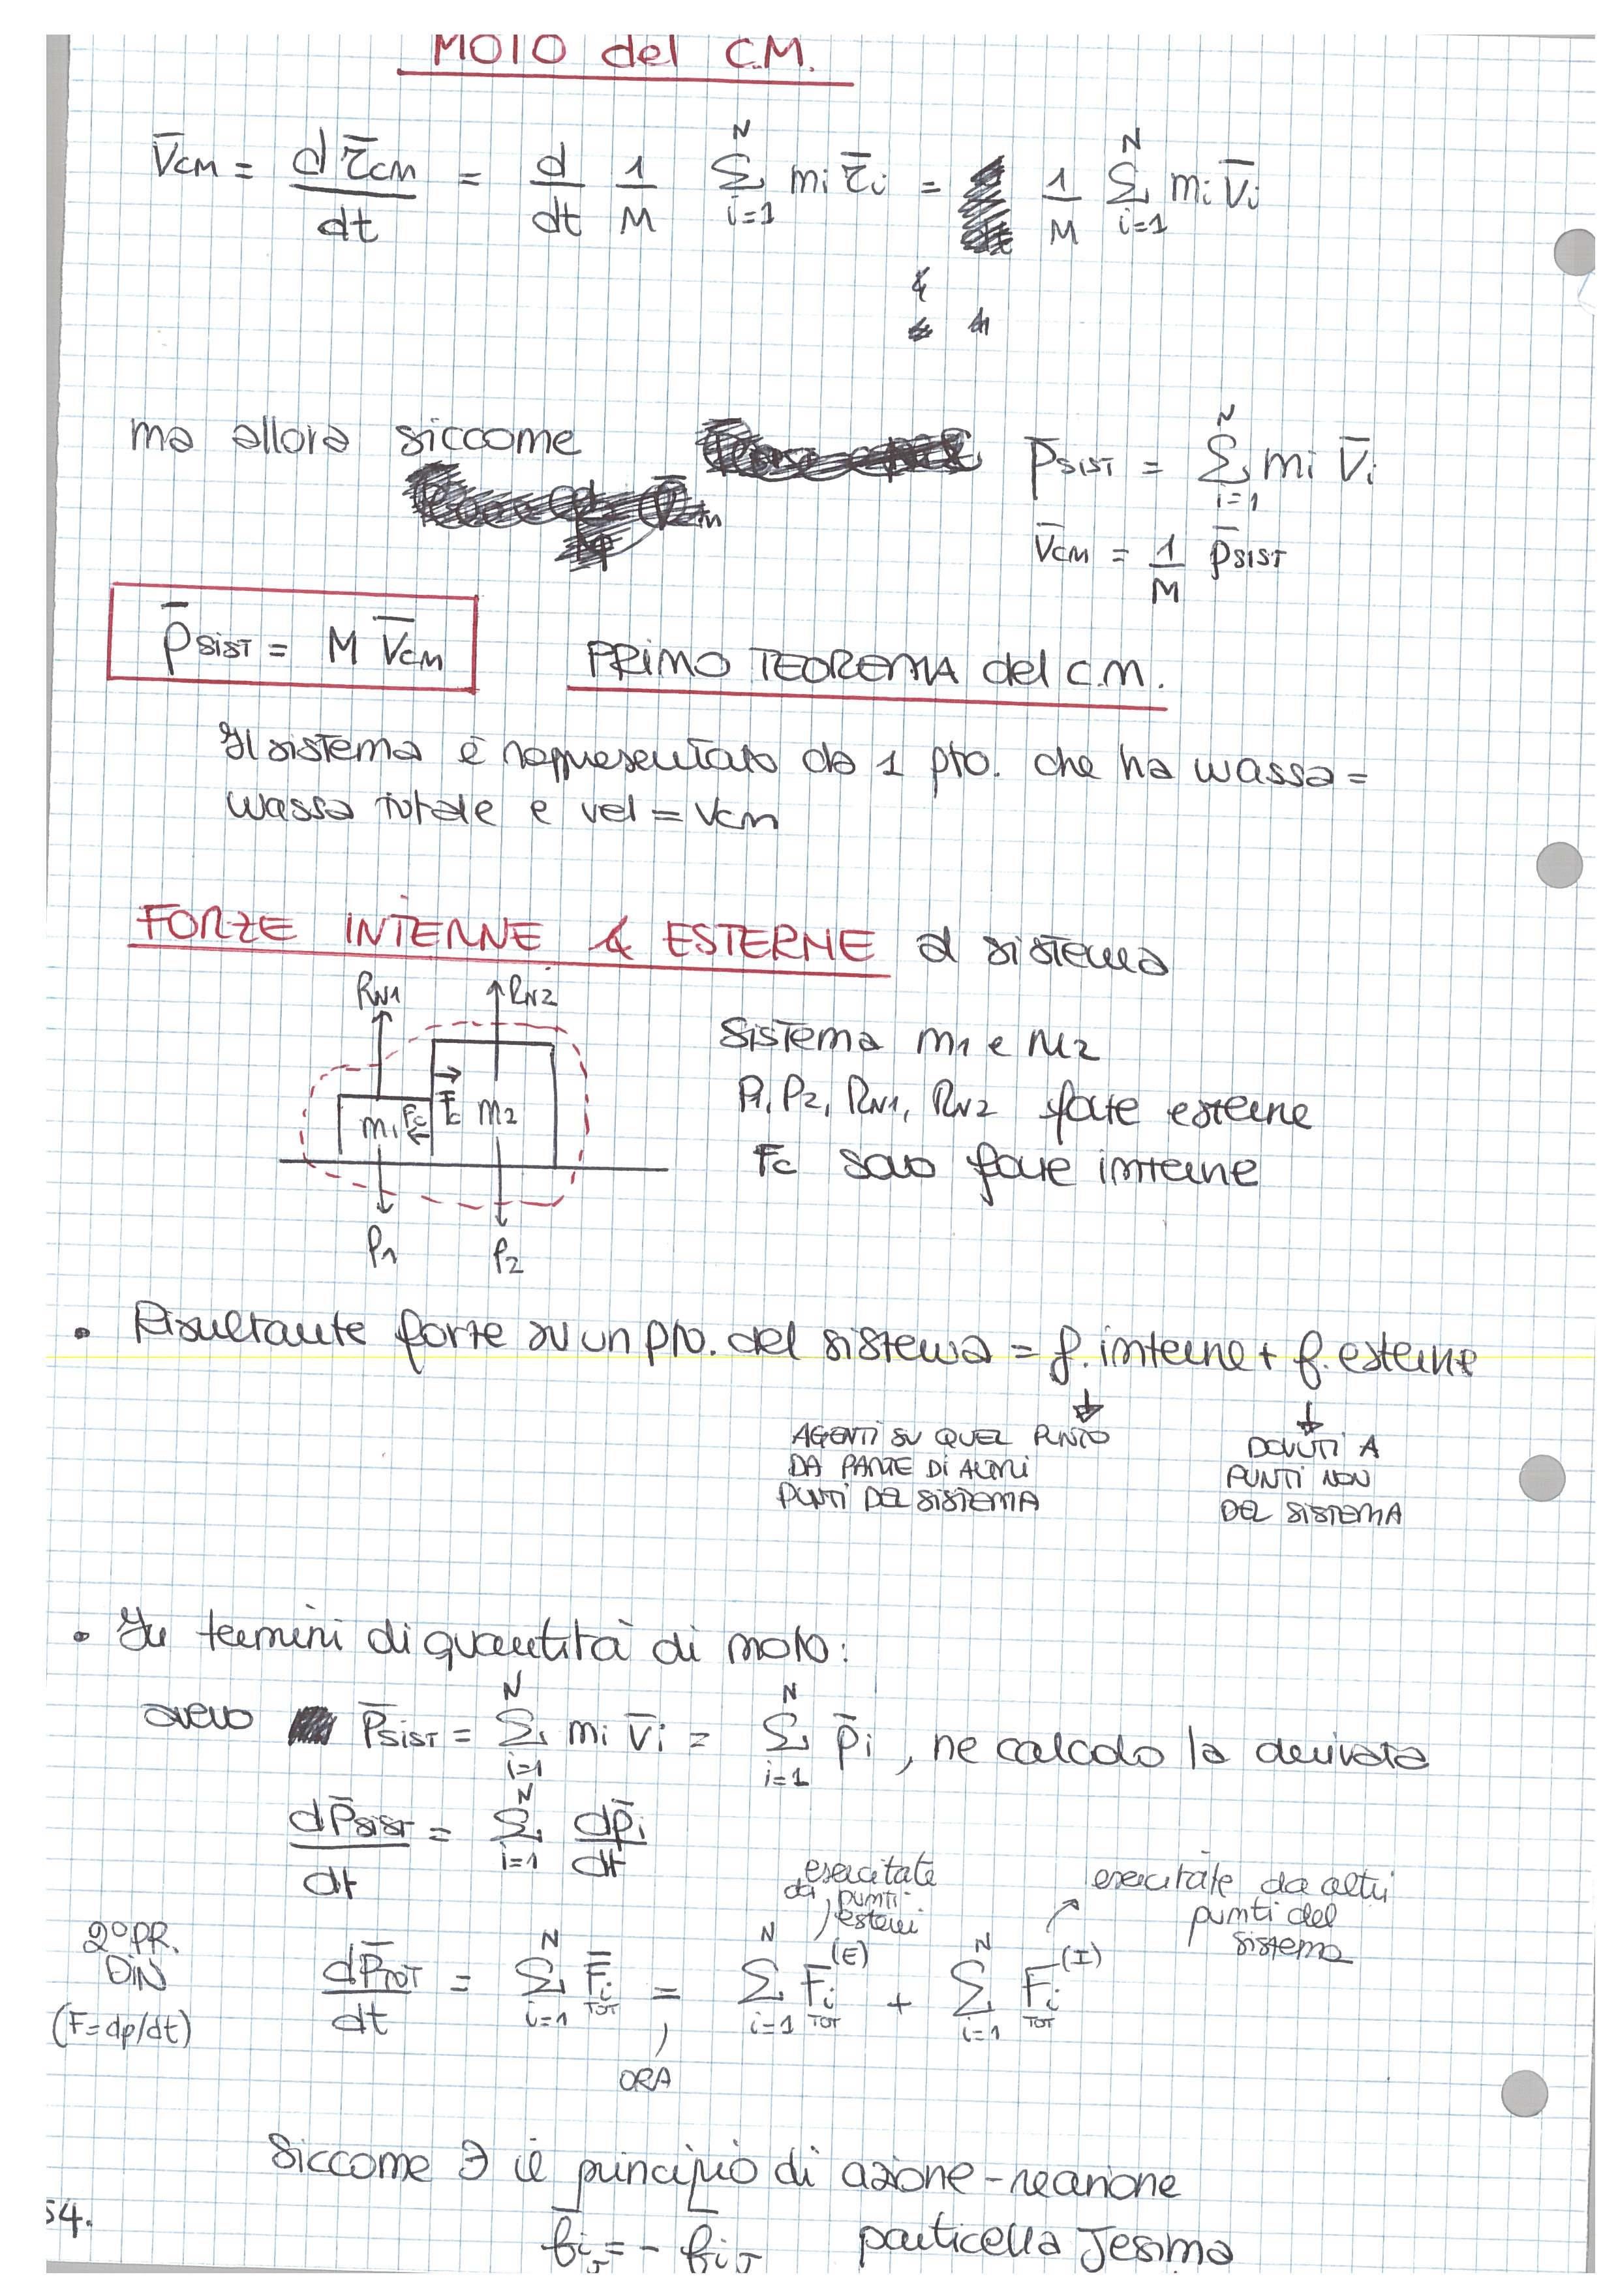 MOTO del C.M.
V̄CM = d r̄CM / dt = d/dt 1/M Σ_{i=1}^{N} mi r̄i = 1/M Σ_{i=1}^{N} mi V̄i
ma allora siccome p̄SIST = Σ_{i=1}^{N} mi V̄i
V̄CM = 1/M p̄SIST
p̄SIST = M V̄CM PRIMO TEOREMA del C.M.
Il sistema è rappresentato da 1 pto. che ha massa =
massa totale e vel = VCM
FORZE INTERNE & ESTERNE al sistema
RN1 RN2
Sistema m1 e M2
Fc
m1 Fc m2
P1, P2, RN1, RN2 forze esterne
Fc sono forze interne
P1 P2
• Risultante forze su un pto. del sistema = f. interne + f. esterne
AGENTI SU QUEL PUNTO
DA PARTE DI ALTRI
PUNTI DEL SISTEMA
DOVUTI A
PUNTI NON
DEL SISTEMA
• In termini di quantità di moto:
avevo P̄SIST = Σ_{i=1}^{N} mi V̄i = Σ_{i=1}^{N} p̄i , ne calcolo la derivata
dP̄SIST / dt = Σ_{i=1}^{N} dp̄i / dt
esercitate
da punti
esterni
esercitate da altri
punti del
sistema
2° PR.
DIN
(F=dp/dt)
dP̄TOT / dt = Σ_{i=1}^{N} F̄i TOT = Σ_{i=1}^{N} F̄i TOT (E) + Σ_{i=1}^{N} F̄i TOT (I)
ORA
Siccome ∃ il principio di azione-reazione
54. particella Jesima